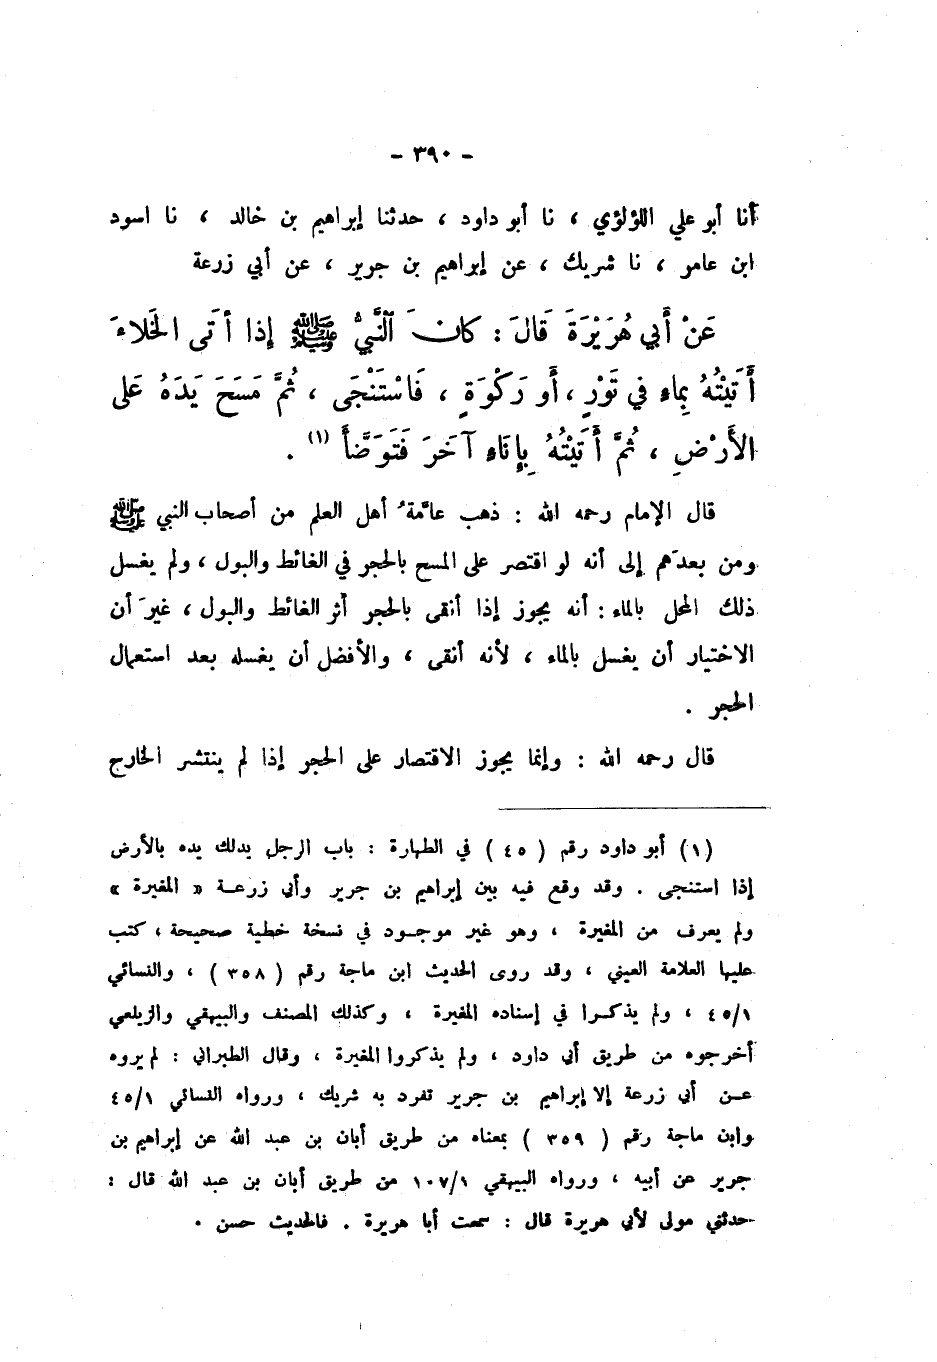 - ٣٩٠ -
أنا أبو علي اللؤلؤي ، نا أبو داود ، حدثنا إبراهيم بن خالد ، نا اسود
ابن عامر ، نا شريك ، عن إبراهيم بن جرير ، عن أبي زرعة
عَنْ أَبي هُرَيْرَةَ قَالَ : كانَ النَّبيُّ ﷺ إذا أَتَى الخَلاءَ
أَتَيْتُهُ بِماءٍ في تَوْرٍ ، أَو رَكْوَةٍ ، فَاسْتَنْجَى ، ثُمَّ مَسَحَ يَدَهُ عَلى
الأَرْضِ ، ثُمَّ أَتَيْتُهُ بِإنَاءٍ آخَرَ فَتَوَضَّأَ (١) .
قال الإمام رحمه الله : ذهب عامَّةُ أهل العلم من أصحاب النبي ﷺ
ومن بعدَهم إلى أنه لو اقتصر على المسح بالحجر في الغائط والبول ، ولم يغسل
ذلك المحل بالماء : أنه يجوز إذا أنقى بالحجر أثر الغائط والبول ، غيرَ أن
الاختيار أن يغسل بالماء ، لأنه أنقى ، والأفضل أن يغسله بعد استعمال
الحجر .
قال رحمه الله : وإنما يجوز الاقتصار على الحجر إذا لم ينتشر الخارج
(١) أبو داود رقم ( ٤٥ ) في الطهارة : باب الرجل يدلك يده بالأرض
إذا استنجى . وقد وقع فيه بين إبراهيم بن جرير وأبي زرعـة « المغيرة »
ولم يعرف من المغيرة ، وهو غير موجـود في نسخة خطية صحيحة ، كتب
عليها العلامة العيني ، وقد روى الحديث ابن ماجة رقم ( ٣٥٨ ) ، والنسائي
٤٥/١ ، ولم يذكـرا في إسناده المغيرة ، وكذلك المصنف والبيهقي والزيلعي
أخرجوه من طريق أبي داود ، ولم يذكروا المغيرة ، وقال الطبراني : لم يروه
عـن أبي زرعة إلا إبراهيم بن جرير تفرد به شريك ، ورواه النسائي ٤٥/١
وابن ماجة رقم ( ٣٥٩ ) بمعناه من طريق أبان بن عبد الله عن إبراهيم بن
جرير عن أبيه ، ورواه البيهقي ١٠٧/١ من طريق أبان بن عبد الله قال :
حدثني مولى لأبي هريرة قال : سمعت أبا هريرة . فالحديث حسن .